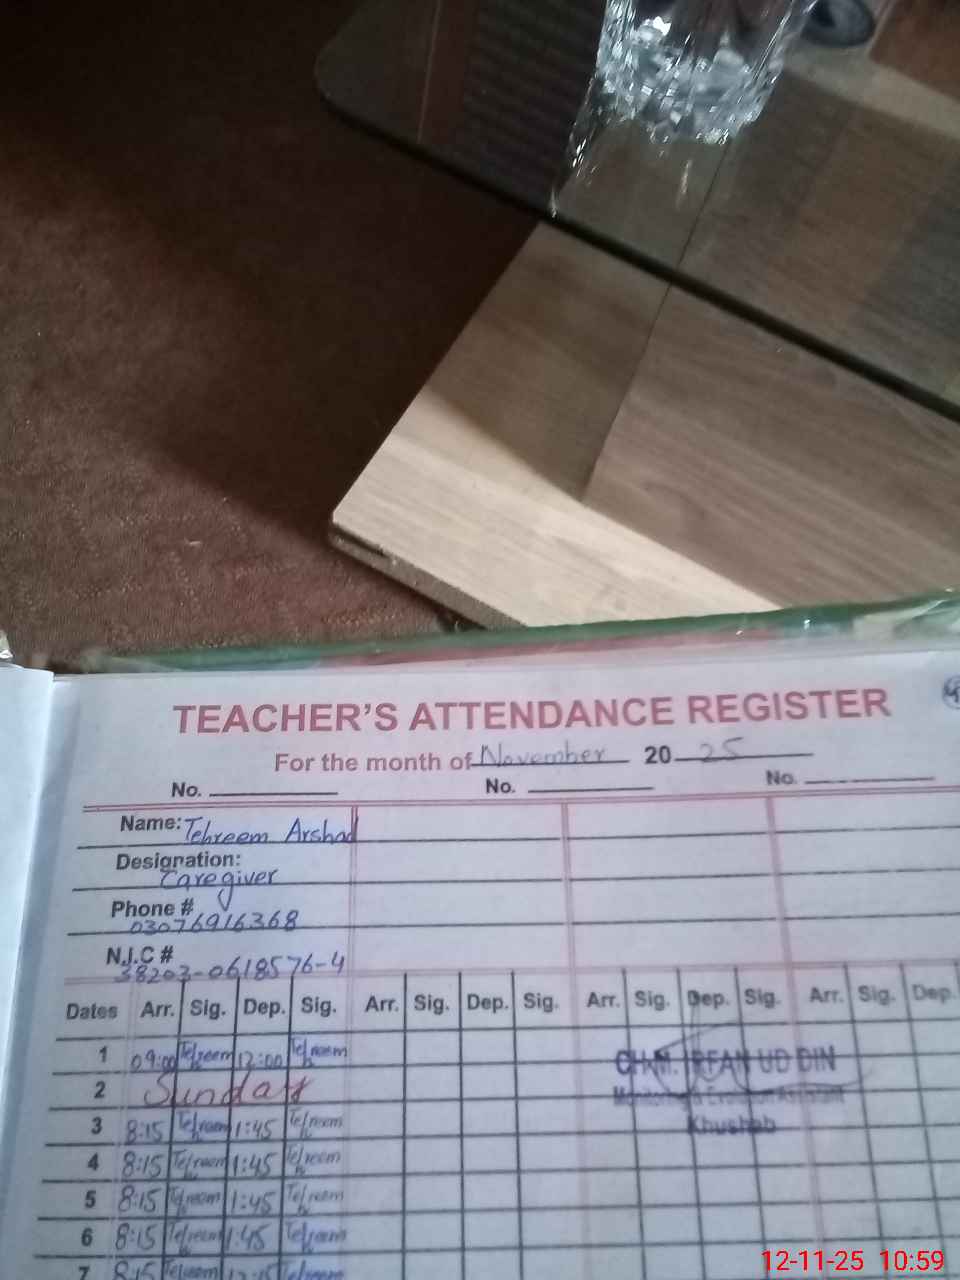 TEACHER'S ATTENDANCE REGISTER
For the month of November 20 25
No. No. No.
Name: Tehreem Arshad
Designation: Caregiver
Phone # 03076916368
N.I.C # 38203-0618576-4
Dates Arr. Sig. Dep. Sig. Arr. Sig. Dep. Sig. Arr. Sig. Dep. Sig. Arr. Sig. Dep.
1 09:00 Tehreem 12:00 Tehreem
2 Sunday
3 8:15 Tehreem 1:45 Tehreem
4 8:15 Tehreem 1:45 Tehreem
5 8:15 Tehreem 1:45 Tehreem
6 8:15 Tehreem 1:45 Tehreem
7 8:15 Tehreem Tehreem
CH.M. IRFAN UD DIN
Monitoring & Assistant
Khushab
12-11-25 10:59